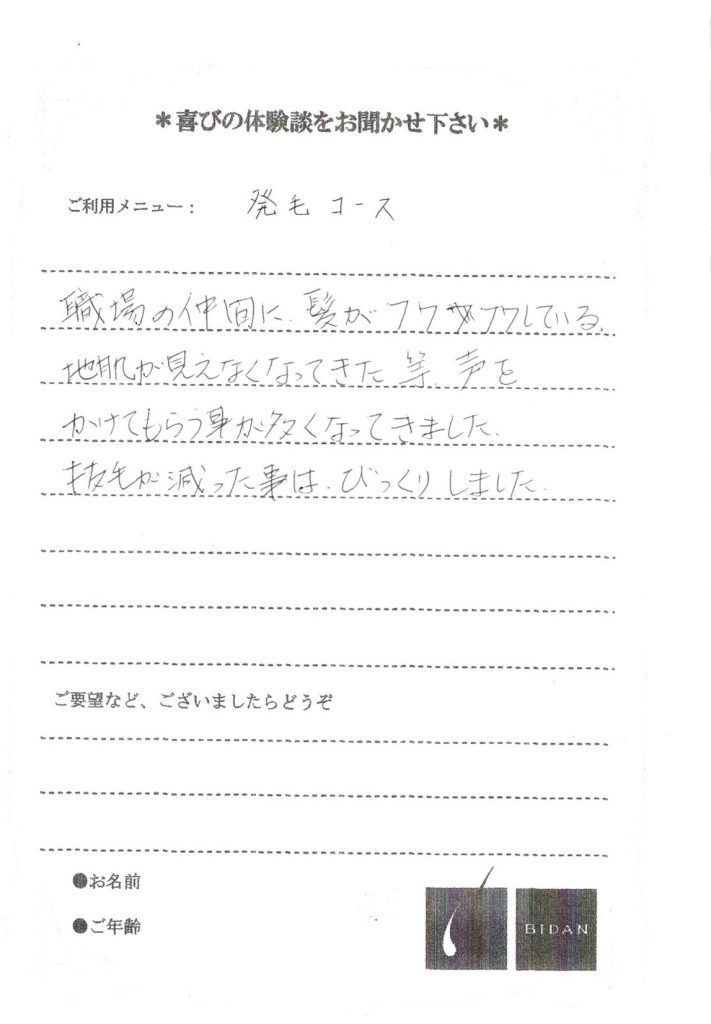 ＊喜びの体験談をお聞かせ下さい＊
ご利用メニュー： 発毛コース
職場の仲間に、髪がフワフワしている、
地肌が見えなくなってきた等、声を
かけてもらう事が多くなってきました。
抜毛が減った事は、びっくりしました。
ご要望など、ございましたらどうぞ
●お名前
●ご年齢
BIDAN